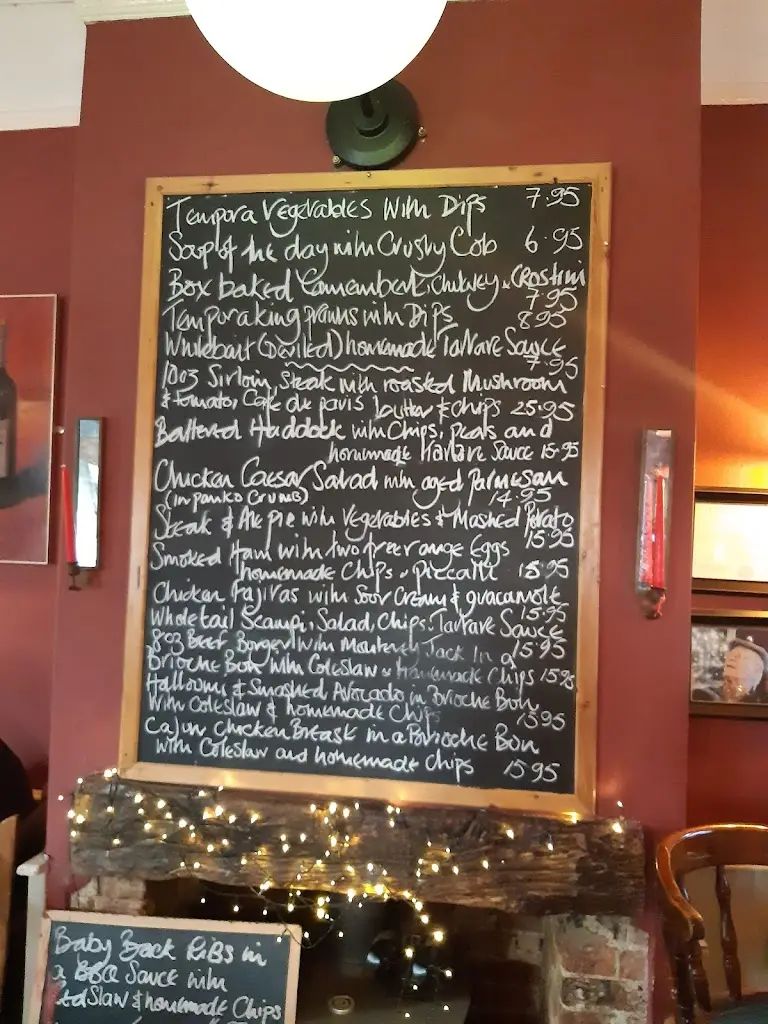 Tempora Vegetables with Dips 7.95
Soup of the day with Crusty Cob 6.95
Box baked Camembert, chutney & CRostini
7.95
Tempora king prawns with Dips 8.95
Whitebait (Devilled) homemade Tartare Sauce
7.95
10oz Sirloin Steak with roasted Mushroom
& tomato, Cafe de paris butter & chips 25.95
Battered Haddock with Chips, Peas and
homemade Tartare Sauce 15.95
Chicken Caesar Salad with aged Parmesan
(in panko crumb) 14.95
Steak & Ale pie with Vegetables & Mashed Potato
15.95
Smoked Ham with two free range Eggs
homemade Chips & piccalli 15.95
Chicken Fajitas with Sour Cream & guacamole
15.95
Wholetail Scampi, Salad, Chips, Tartare Sauce
15.95
8oz Beef Burger with Monterey Jack In a
Brioche Bun with Coleslaw & Homemade Chips 15.95
Halloumi & Smashed Avocado in Brioche Bun
With Coleslaw & homemade Chips 15.95
Cajun Chicken Breast in a Brioche Bun
with Coleslaw and homemade chips 15.95
Baby Back RiBs in
a BBQ Sauce with
Slaw & homemade Chips